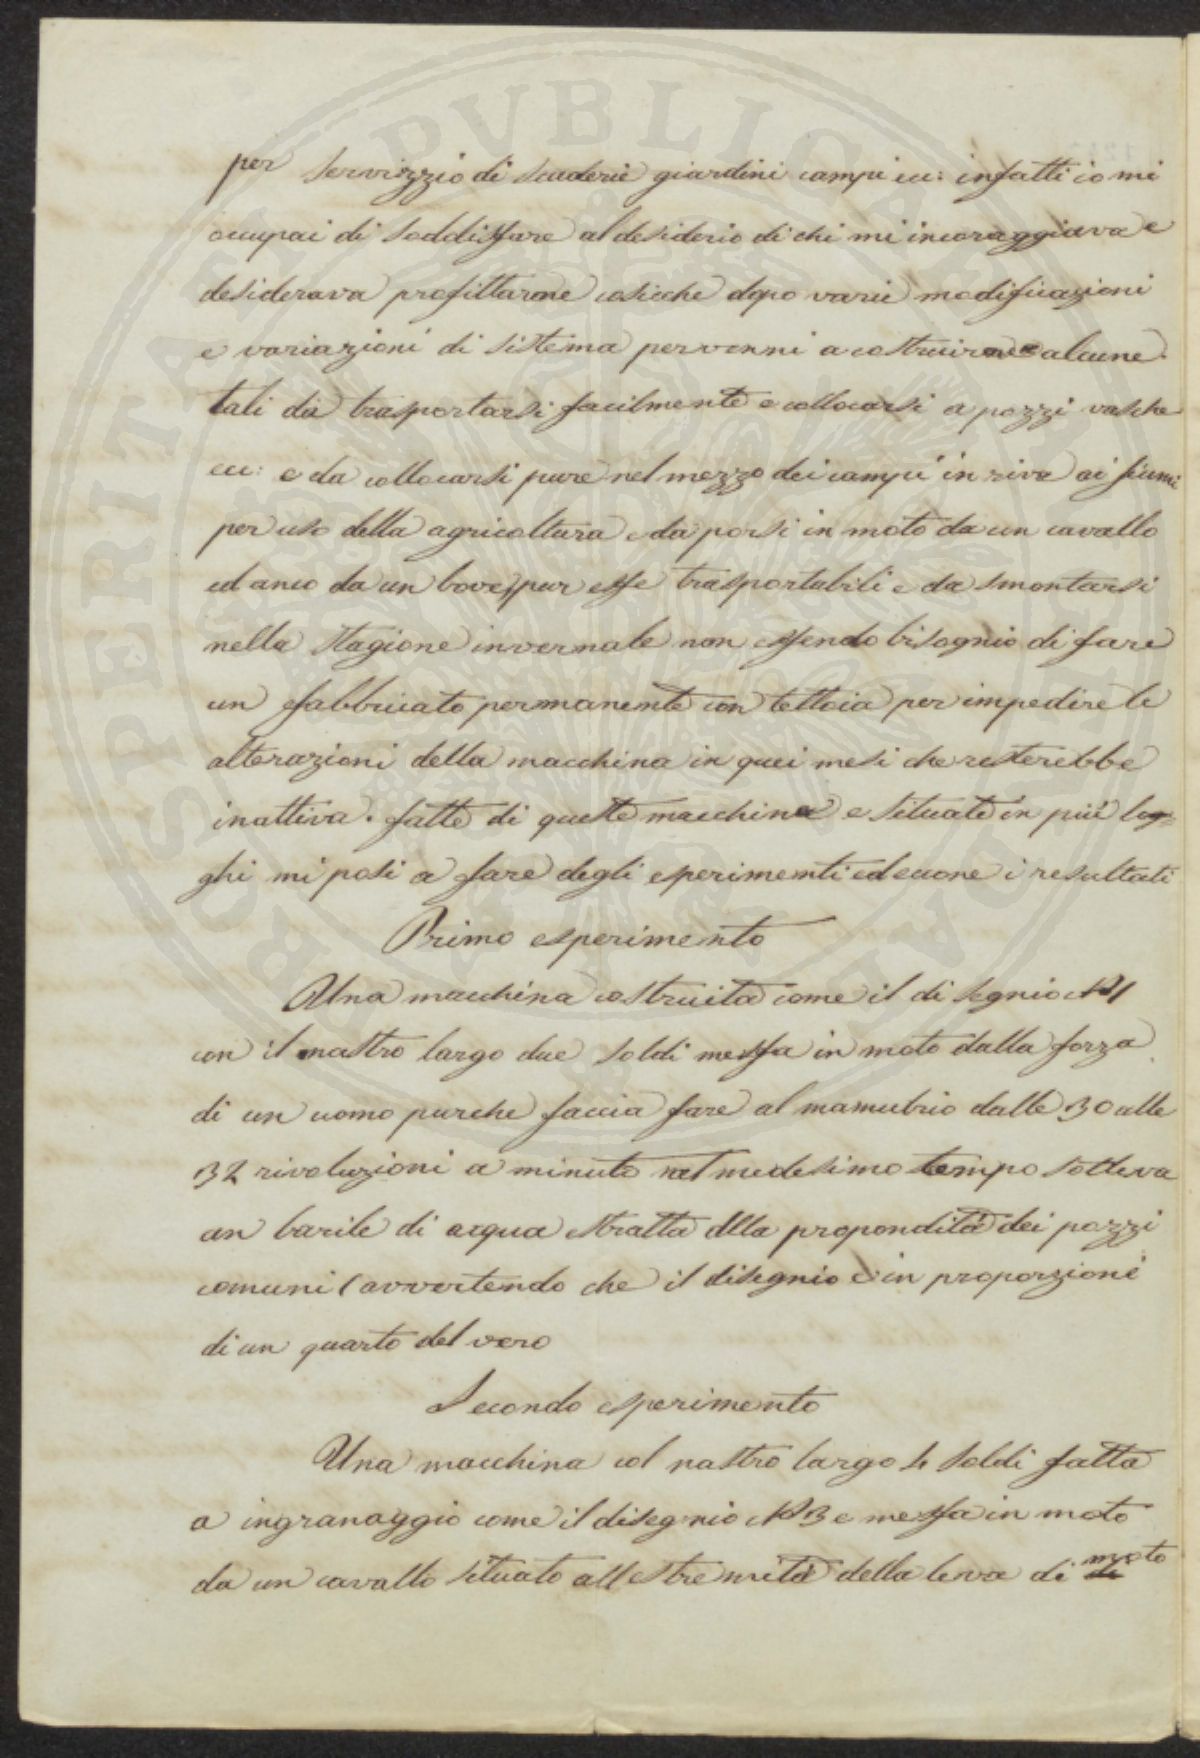 per servizzio di scuderie giardini campi ecc: infatti io mi
occupai di soddisfare al desiderio di chi mi incoraggiava e
desiderava profittarone cosicche dopo varie modificazioni
e variazioni di sistema pervenni a costruirne alcune
tali da trasportarsi facilmente e collocarsi a pozzi vasche
ecc: e da collocarsi pure nel mezzo dei campi in riva ai fiumi
per uso della agricoltura e da porsi in moto da un cavallo
ed anco da un bove, pur esse trasportabili e da smontarsi
nella stagione invernale non essendo bisognio di fare
un fabbricato permanente con tettoia per impedire le
alterazioni della macchina in quei mesi che resterebbe
inattiva. fatte di queste macchine e situate in più luo=
ghi mi posi a fare degli esperimenti ed eccone i resultati
Primo esperimento
Una macchina costruita come il disegnio N1
con il nastro largo due soldi messa in moto dalla forza
di un uomo purche faccia fare al manubrio dalle 30 alle
32 rivoluzioni a minuto nel medesimo tempo solleva
un barile di acqua estratta dlla propondità dei pozzi
comuni (avvertendo che il disegnio è in proporzione
di un quarto del vero
Secondo esperimento
Una macchina col nastro largo 4 soldi fatta
a ingranaggio come il disegnio N3 e messa in moto
da un cavallo situato all estremità della leva di moto
PROSPERITAS PVBLICA